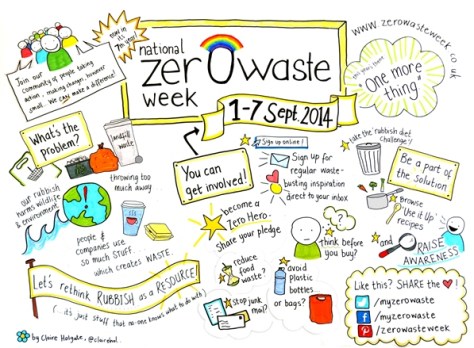 now in its 7th year!
Join our
community of people taking
action, making changes, however
small. We can make a difference!
national
zero waste
week
1-7 Sept. 2014
www.zerowasteweek.co.uk
One more
thing
What's the
problem?
landfill
waste
throwing too
much away
our rubbish
harms wildlife
& environment
people &
companies use
so much stuff
which creates WASTE.
Let's rethink RUBBISH as a RESOURCE!
(...it's just stuff that no-one knows what to do with)
by Claire Holgate,
You can
get involved!
Sign up online!
Sign up for
regular waste-
busting inspiration
direct to your inbox
become a
Zero Hero -
Share your pledge.
reduce
food
waste?
stop junk
mail?
avoid
plastic
bottles
or bags?
think before
you buy?
take the 'rubbish diet'
challenge!
Be a part of
the solution
Browse
Use it Up
recipes
and
RAISE
AWARENESS
Like this? SHARE the ♥!
/myzerowaste
/myzerowaste
/zerowasteweek